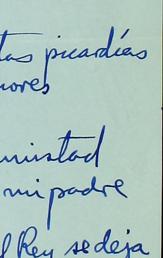 tas picardías
nores
mistad
mi padre
l Rey se deja